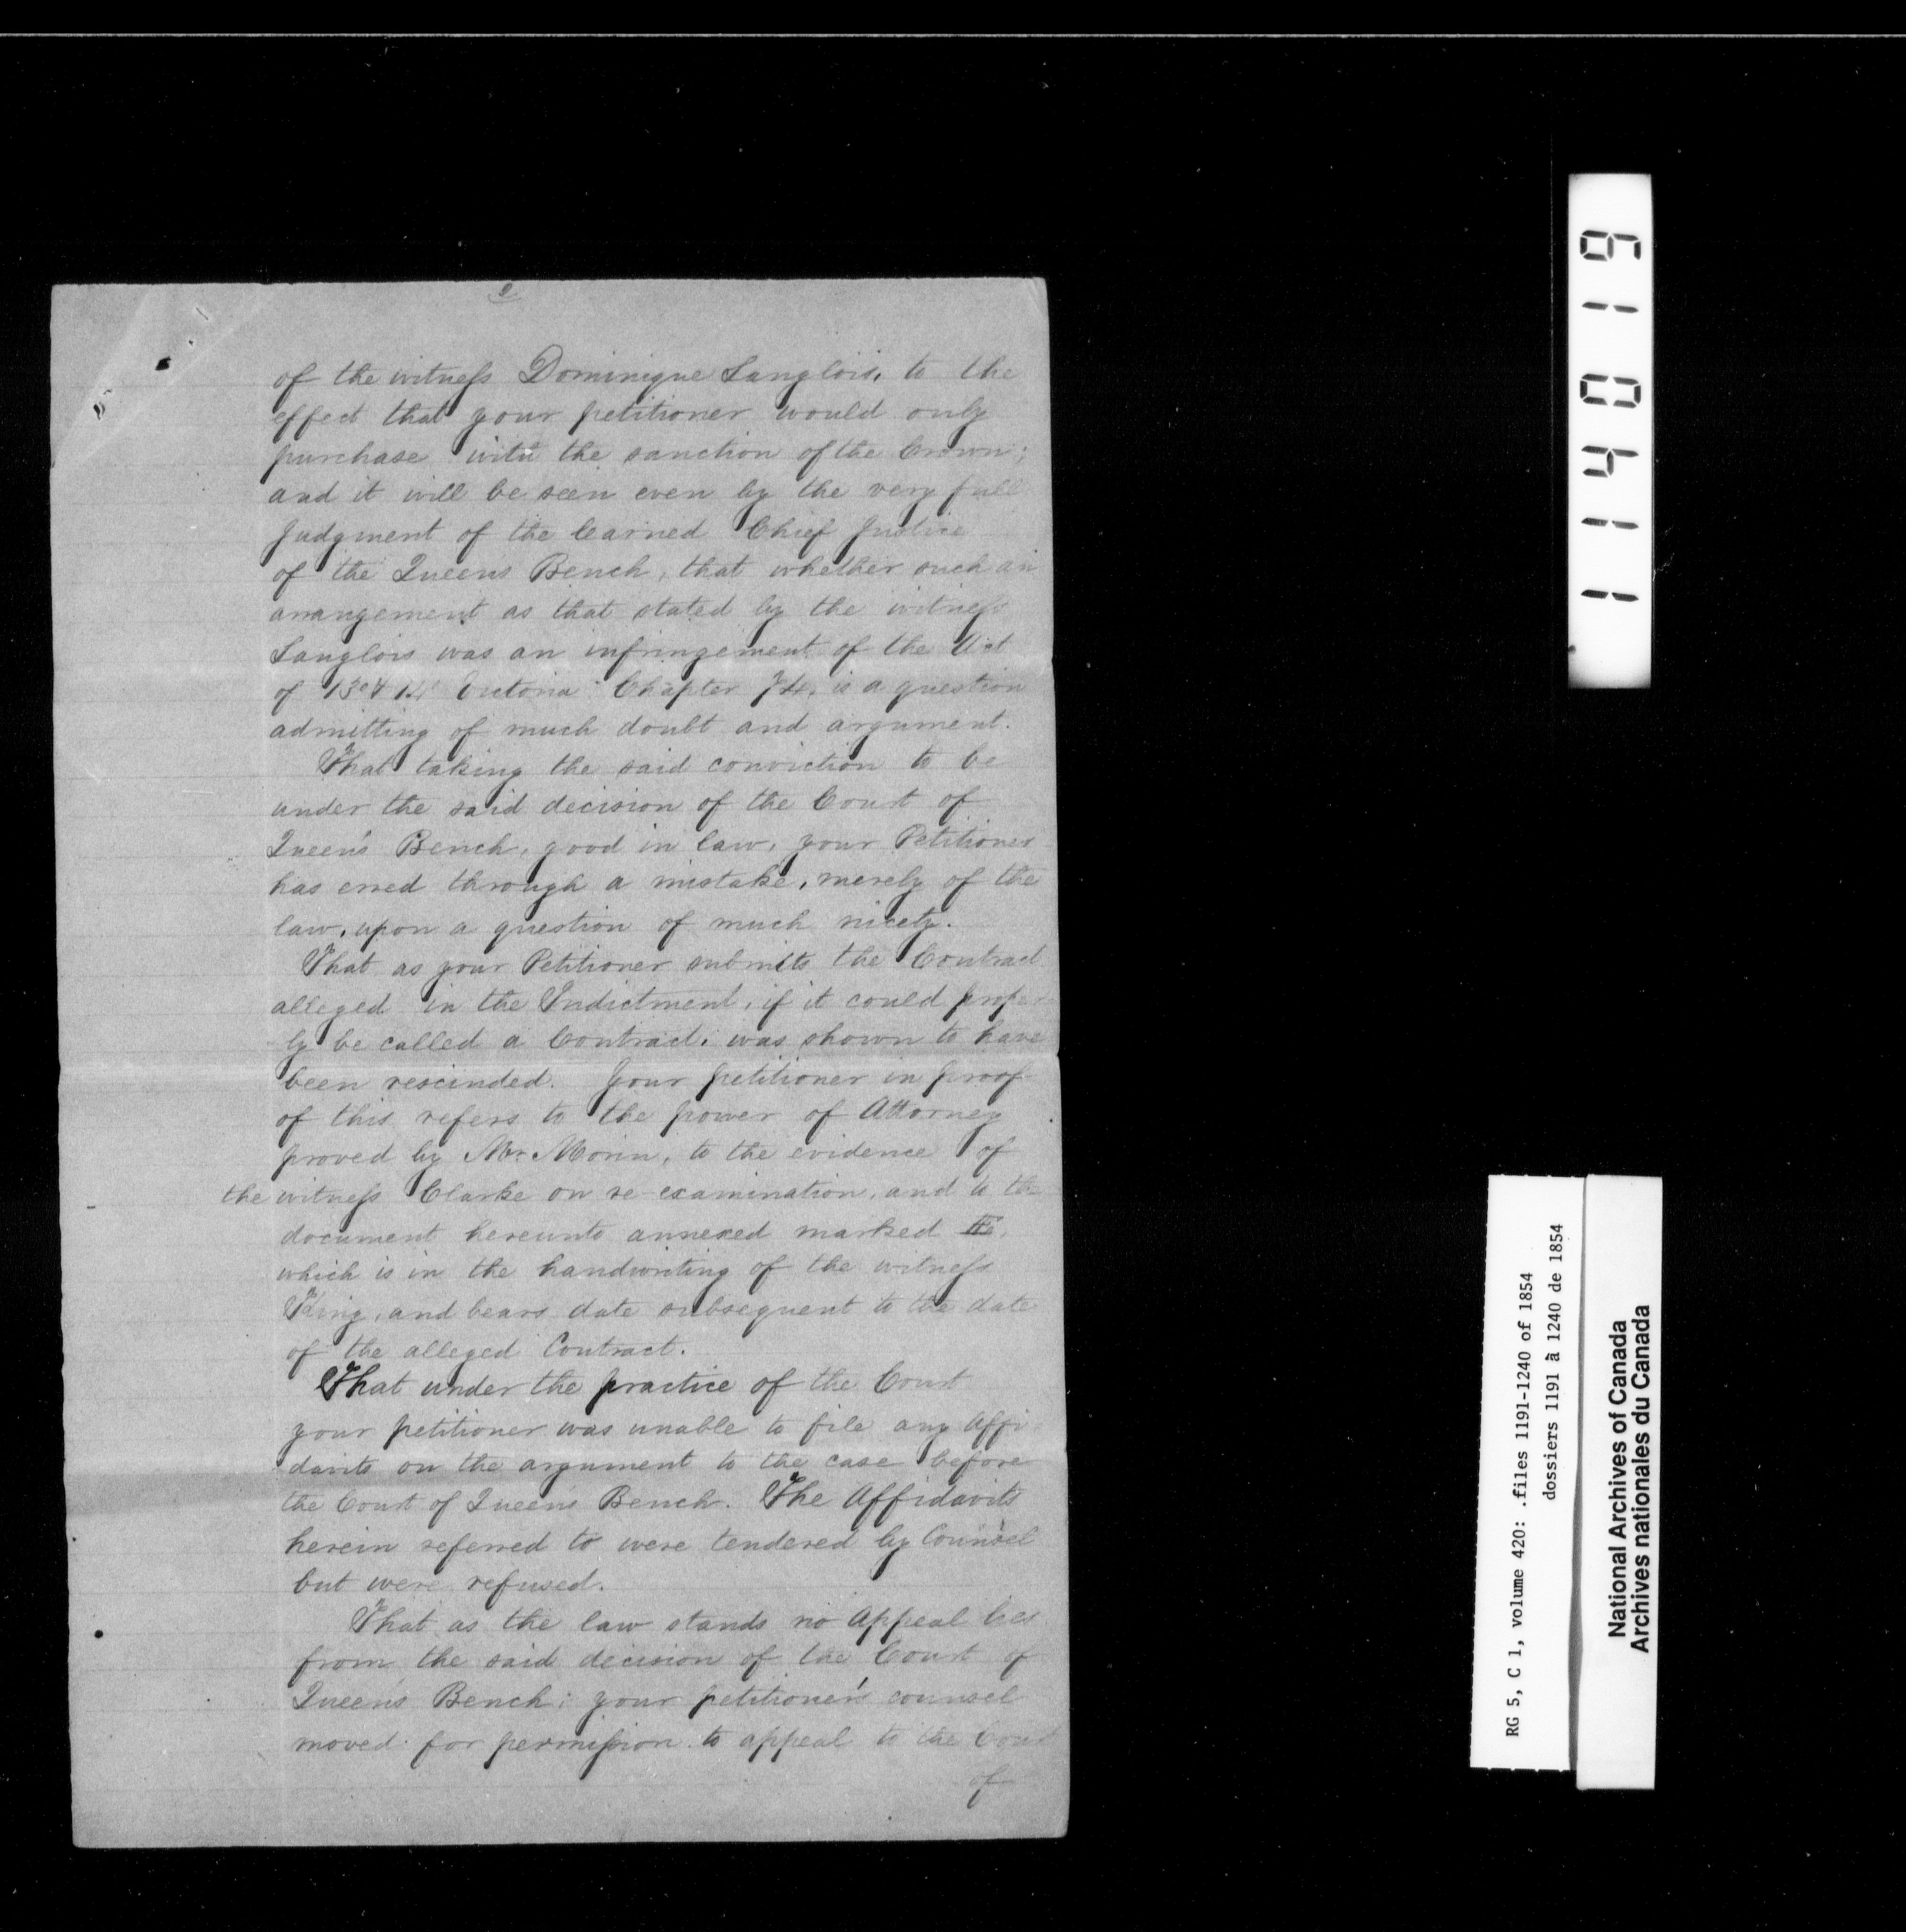 of the witness Dominique Langlois, to the
effect that your petitioner would only
purchase with the sanction of the Crown;
and it will be seen even by the very full
Judgment of the learned Chief Justice
of the Queens Bench, that whether such an
arrangement as that stated by the witness
Langlois was an infringement of the Act
of 13 & 14 Victoria Chapter 74, is a question
admitting of much doubt and argument.
That taking the said conviction to be
under the said decision of the Court of
Queen's Bench, good in law, your Petitioner
has erred through a mistake, merely of the
law, upon a question of much nicety.
That as your Petitioner submits the Contract
alleged in the Indictment, if it could proper
ly be called a Contract, was shown to have
been rescinded. Your petitioner in proof
of this refers to the power of Attorney
proved by Mr. Morin, to the evidence of
the witness Clarke on re-examination, and to the
document hereunto annexed marked
which is in the handwriting of the witness
King, and bears date subsequent to the date
of the alleged Contract.
That under the practice of the Court
your petitioner was unable to file any Affi
davits on the argument to the case before
the Court of Queen's Bench. The Affidavits
herein referred to were tendered by Counsel
but were refused.
That as the law stands no Appeal lies
from the said decision of the Court of
Queen's Bench; your petitioner's counsel
moved for permission to appeal to the Court
of
114019
RG 5, C 1, volume 420: .files 1191-1240 of 1854
dossiers 1191 à 1240 de 1854
National Archives of Canada
Archives nationales du Canada